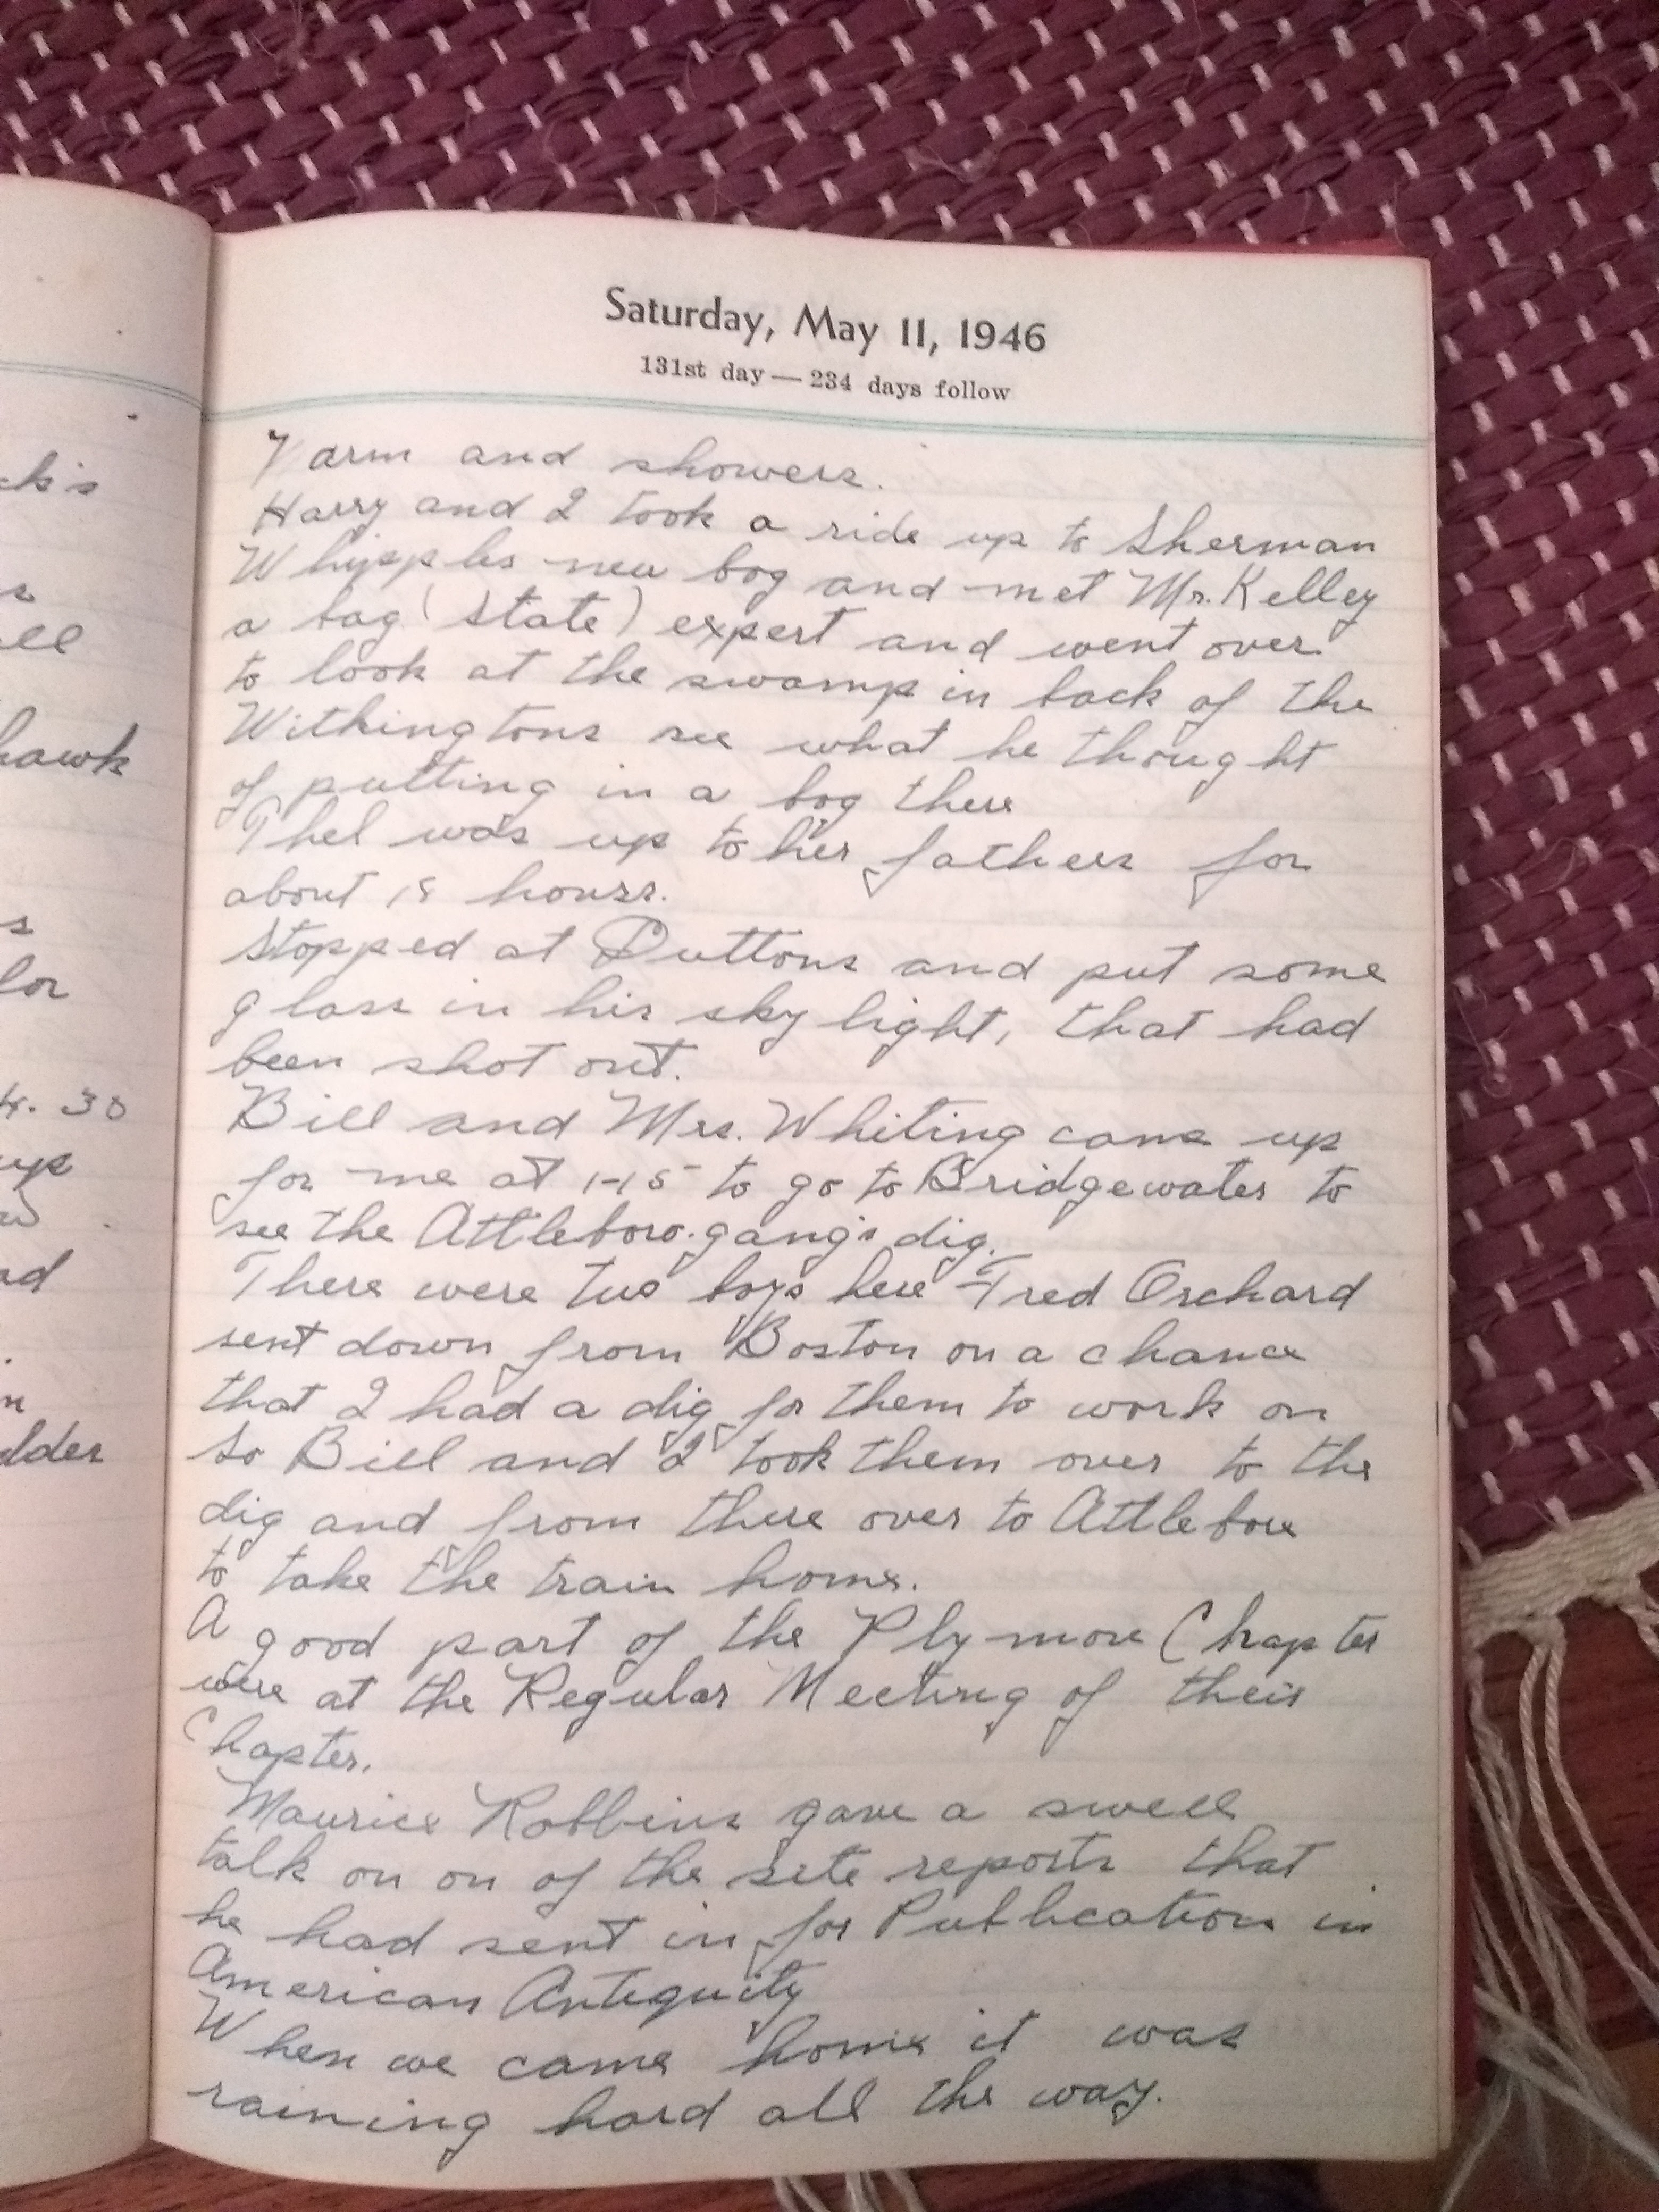 Saturday, May 11, 1946
131st day — 234 days follow
Warm and showers.
Harry and I took a ride up to Sherman
Whipples new bog and met Mr. Kelley
a bog (State) expert and went over
to look at the swamp in back of the
Withingtons see what he thought
of putting in a bog there
Thel was up to her fathers for
about 18 hours.
Stopped at Duttons and put some
glass in his sky light, that had
been shot out.
Bill and Mrs. Whiting came up
for me at 1-15 to go to Bridgewater to
see the Attleboro gang's dig.
There were two boys here Fred Orchard
sent down from Boston on a chance
that I had a dig for them to work on
So Bill and I took them over to the
dig and from there over to Attleboro
to take the train home.
A good part of the Plymore Chapter
were at the Regular Meeting of their
Chapter.
Maurice Robbins gave a swell
talk on on of the site reports that
he had sent in for Publication in
American Antequity
When we came home it was
raining hard all the way.
ck's
all
hawk
s
lor
4.30
up
ad
n
lder